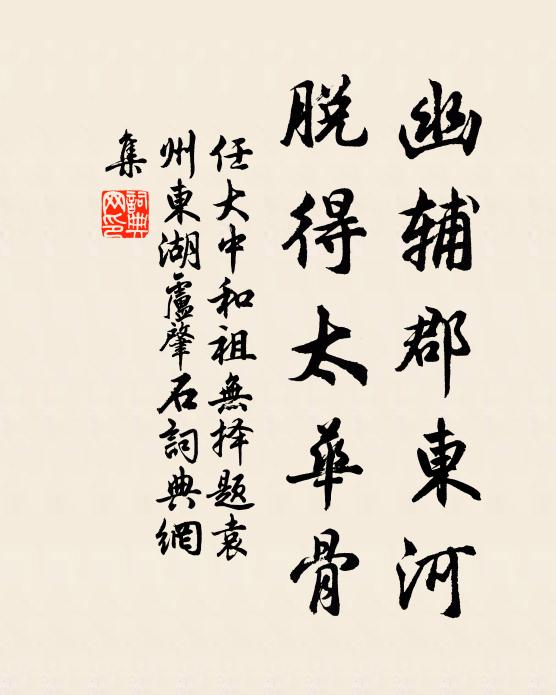 幽辅郡東河
脱得太華骨
任大中和祖無择题袁
州東湖盧肇石詞典網
集
詞典
网印